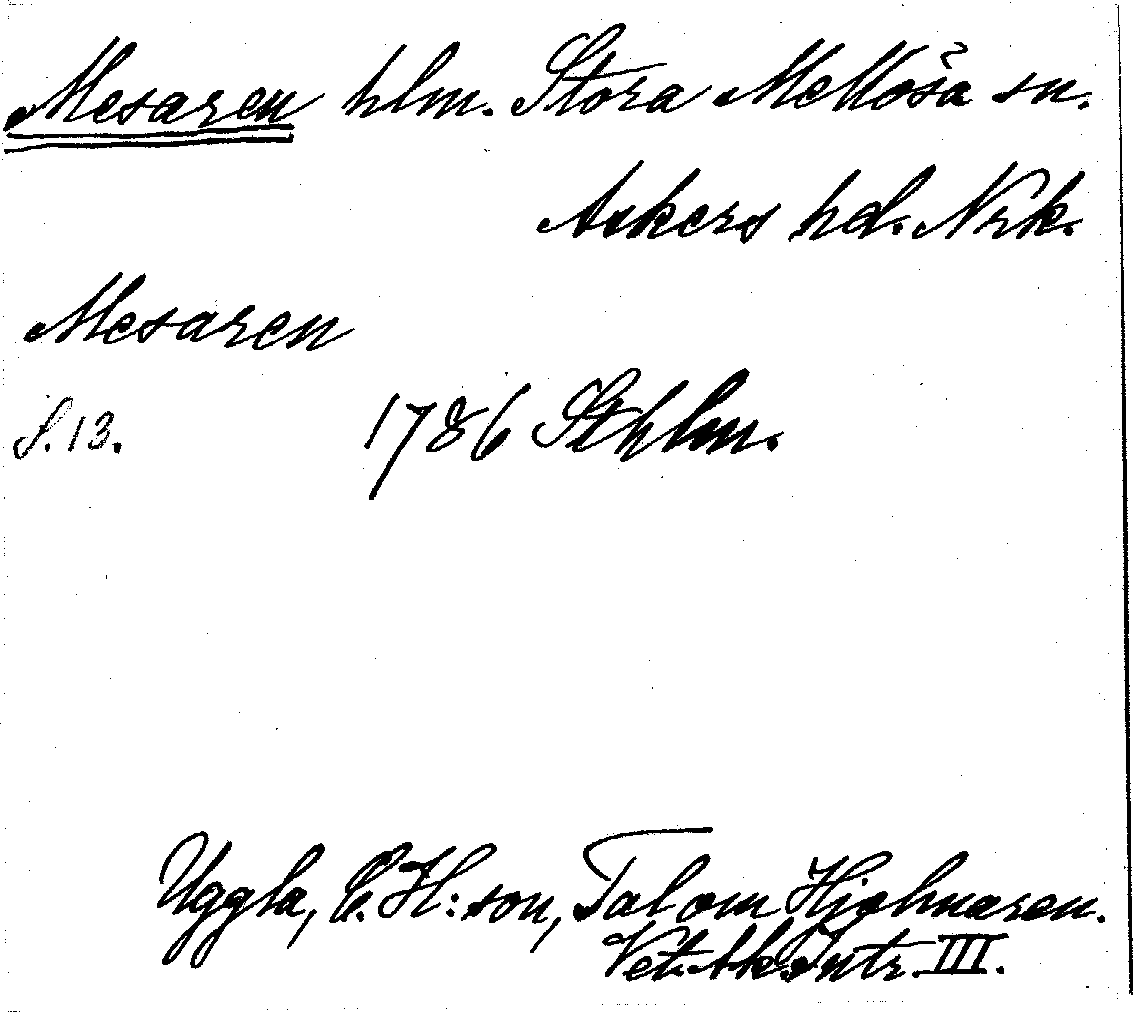 Mesaren hlm. Stora Mellösa sn.
Askers hd. Nrk.
Mesaren
S. 13. 1786 Sthlm.
Uggla, C. H:son, Tal om Hjelmaren.
Vet. Ak. Intr. III.